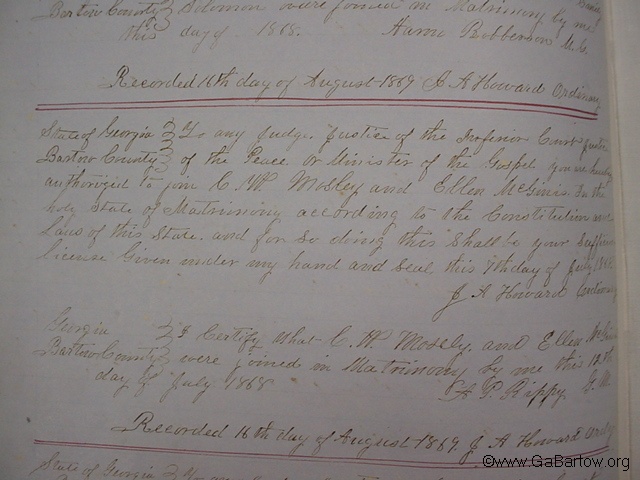 Bartow County } Solomon were joined in Matrimony by me
this day of 1868. Aaron Robberson M.G.
Recorded 16th day of August 1869 J A Howard Ordinary
State of Georgia } To any Judge, Justice of the Inferior Court, Justice
Bartow County } of the Peace or Minister of the Gospel you are hereby
authorized to join C. W. Mosley and Ellen McGinis In the
holy State of Matrimony according to the Constitution and
Laws of this State. and for So doing this Shall be your Sufficient
license Given under my hand and Seal, this 7th day of July
J A Howard Ordinary
Georgia } I Certify that C. W. Mosely and Ellen McGinis
Bartow County } were joined in Matrimony by me this 12th
day of July 1868 P. Rippy
Recorded 16th day of August 1869. J A Howard Ordy
State of Georgia } To any
©www.GaBartow.org